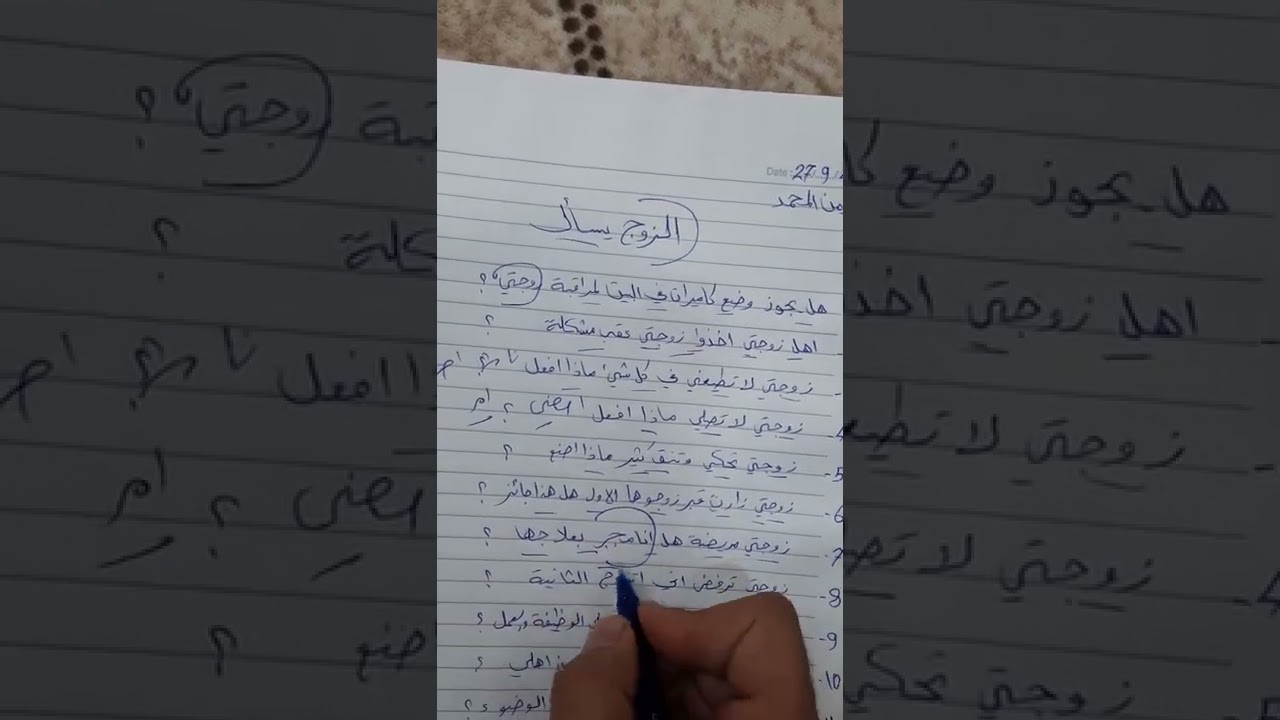 Date 27.9
من المحمد
الزوج يسأل
هل يجوز وضع كاميرات في البيت لمراقبة زوجتي ؟
اهل زوجتي اخذوا زوجتي عقب مشكلة ؟
زوجتي لا تطيعني في كل شيء ماذا افعل
زوجتي لا تصلي ماذا افعل ؟ ام
5- زوجتي تحكي وتنق كثير ماذا اصنع ؟
6- زوجتي زارت قبر زوجها الاول هل هذا جائز ؟
7- زوجتي مريضة هل انا مجبر بعلاجها ؟
8- زوجتي ترفض اني اتزوج الثانية ؟
9- الوظيفة والعمل ؟
10- اهلي ؟
الوضوء ؟